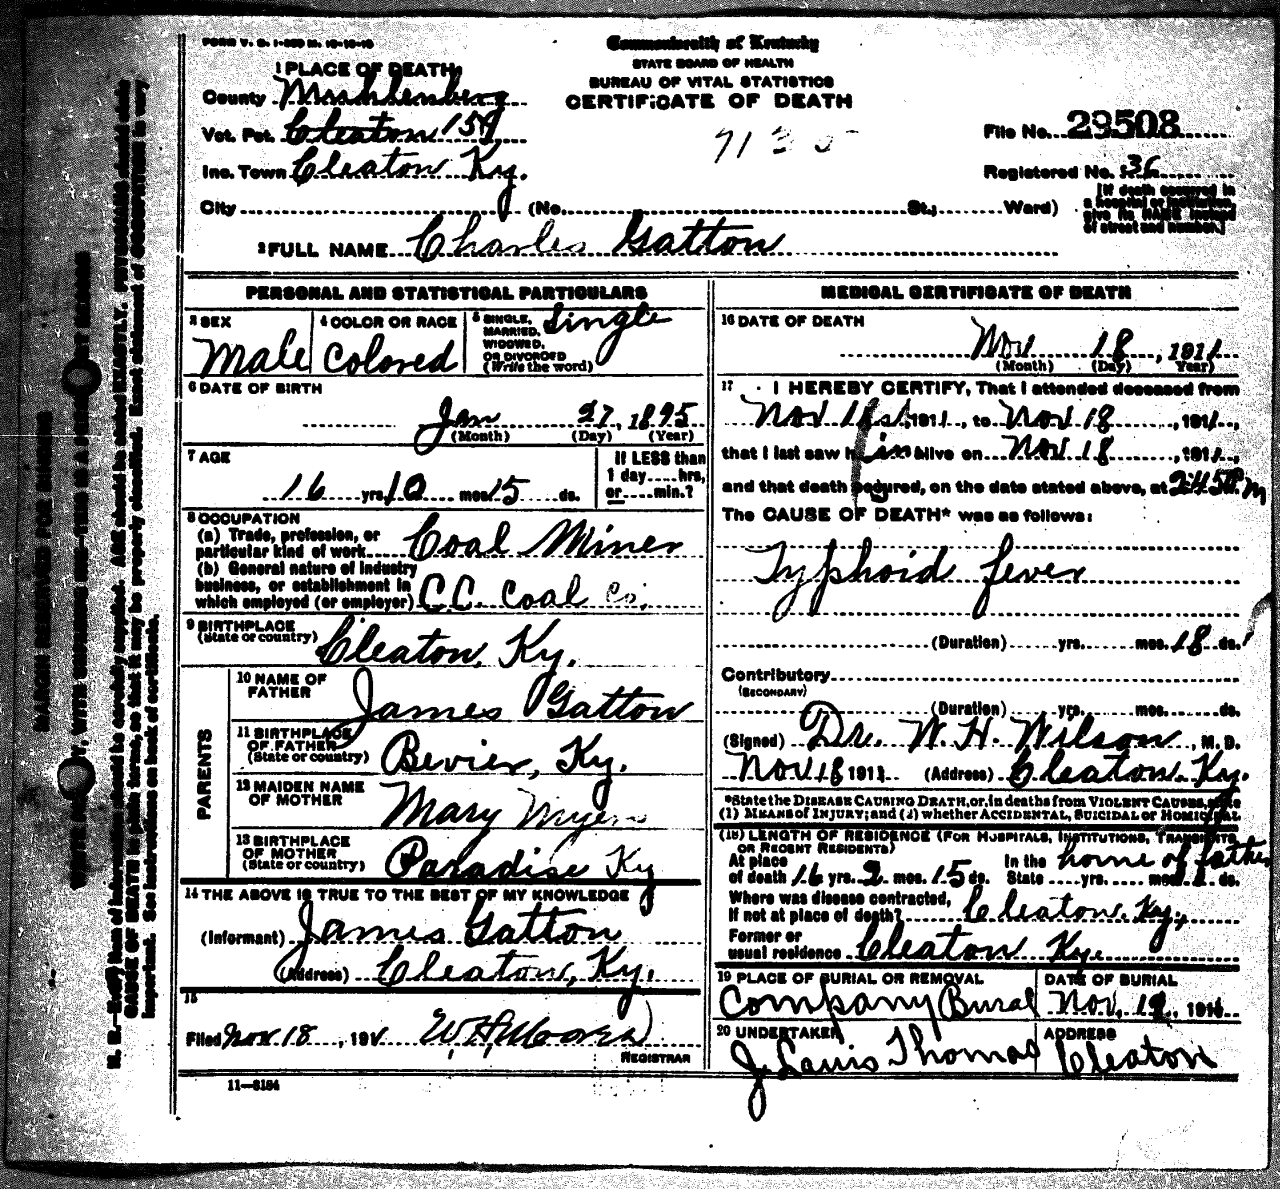 FORM V. S. 1-
Commonwealth of Kentucky
STATE BOARD OF HEALTH
BUREAU OF VITAL STATISTICS
CERTIFICATE OF DEATH
1 PLACE OF DEATH
County Muhlenberg
Vot. Pct. Cleaton 159
Inc. Town Cleaton Ky.
City (No. St.; Ward)
File No. 29508
Registered No. 36
[If death occurred in
a hospital or institution,
give its NAME instead
of street and number.]
2 FULL NAME Charles Gatton
PERSONAL AND STATISTICAL PARTICULARS
3 SEX
Male
4 COLOR OR RACE
Colored
5 SINGLE, MARRIED, WIDOWED, OR DIVORCED (Write the word)
Single
6 DATE OF BIRTH
Jan 27, 1895
(Month) (Day) (Year)
7 AGE
16 yrs. 10 mos. 15 ds.
If LESS than
1 day....hrs,
or....min.?
8 OCCUPATION
(a) Trade, profession, or
particular kind of work Coal Miner
(b) General nature of industry
business, or establishment in
which employed (or employer) C.C. Coal Co.
9 BIRTHPLACE
(State or country) Cleaton, Ky.
PARENTS
10 NAME OF
FATHER James Gatton
11 BIRTHPLACE
OF FATHER
(State or country) Bevier, Ky.
12 MAIDEN NAME
OF MOTHER Mary Myers
13 BIRTHPLACE
OF MOTHER
(State or country) Paradise Ky
14 THE ABOVE IS TRUE TO THE BEST OF MY KNOWLEDGE
(Informant) James Gatton
(Address) Cleaton, Ky.
15
Filed Nov 18, 191 W. H. Moore
REGISTRAR
11—8184
MEDICAL CERTIFICATE OF DEATH
16 DATE OF DEATH
Nov 18, 1911
(Month) (Day) (Year)
17 I HEREBY CERTIFY, That I attended deceased from
Nov 1st, 1911, to Nov 18, 1911,
that I last saw him alive on Nov 18, 1911,
and that death occured, on the date stated above, at 2:45 P m
The CAUSE OF DEATH* was as follows:
Typhoid fever
(Duration) yrs. mos. 18 ds.
Contributory
(SECONDARY)
(Duration) yrs. mos. ds.
(Signed) Dr. W. H. Wilson, M. D.
Nov 18 1911 (Address) Cleaton Ky.
*State the DISEASE CAUSING DEATH, or, in deaths from VIOLENT CAUSES, state
(1) MEANS of INJURY; and (2) whether ACCIDENTAL, SUICIDAL or HOMICIDAL
(18) LENGTH OF RESIDENCE (FOR HOSPITALS, INSTITUTIONS, TRANSIENTS
OR RECENT RESIDENTS)
At place
of death 16 yrs. 2 mos. 15 ds.
In the
State yrs. mos. ds.
home of father
Where was disease contracted,
If not at place of death? Cleaton, Ky.,
Former or
usual residence Cleaton Ky.
19 PLACE OF BURIAL OR REMOVAL
Company Bural
DATE OF BURIAL
Nov. 19, 1911
20 UNDERTAKER
J. Lauis Thomas
ADDRESS
Cleaton
MARGIN RESERVED FOR BINDING
WRITE PLAINLY, WITH UNFADING INK—THIS IS A PERMANENT RECORD
N. B.—Every item of information should be carefully supplied. AGE should be stated EXACTLY. PHYSICIANS should state
CAUSE OF DEATH in plain terms, so that it may be properly classified. Exact statement of OCCUPATION is very
important. See instructions on back of certificate.